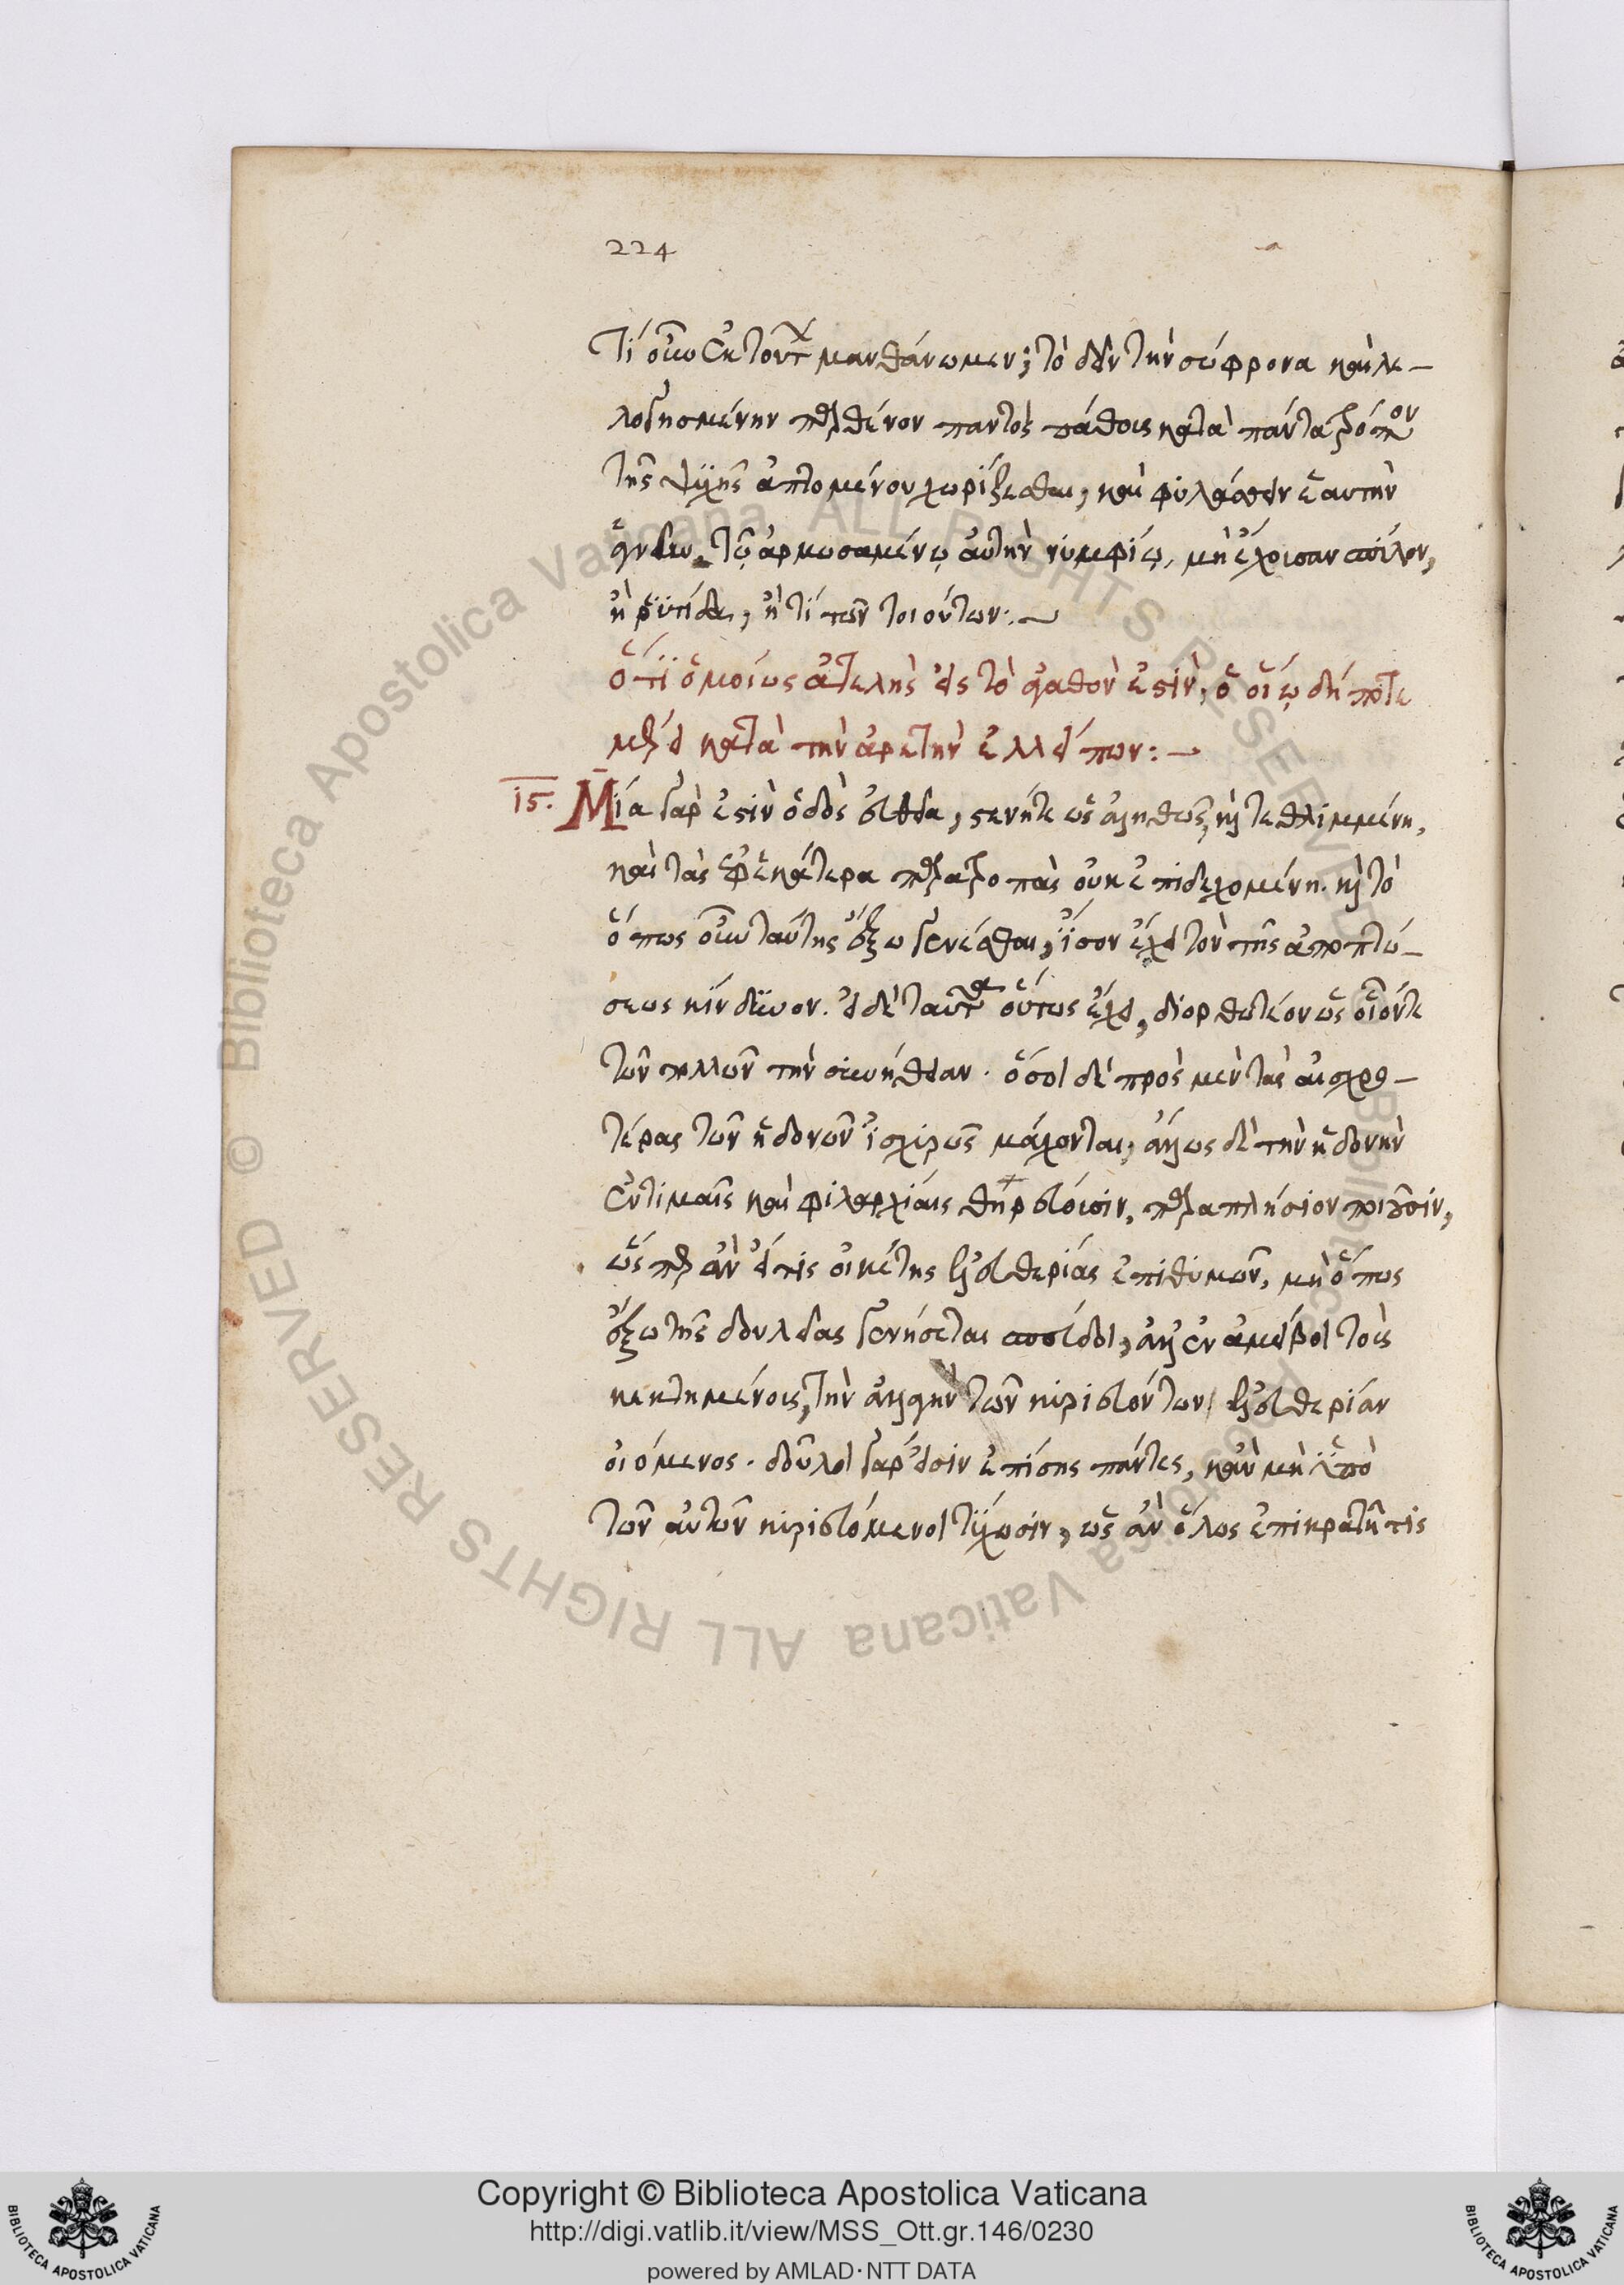 224
Τί οὖν ἐκ τούτων μανθάνωμεν; τὸ δεῖν τὴν σώφρονα καὶ λε-
λογισμένην παρθένον παντὸς πάθους κατὰ πάντα τρόπον
τῆς ψυχῆς ἁπτομένου χωρίζεσθαι, καὶ φυλάσσειν ἑαυτὴν
ἁγνὴν τῷ ἁρμωσαμένῳ αὐτὴν νυμφίῳ, μὴ ἔχουσαν σπίλον,
ἢ ῥυτίδα, ἤ τι τῶν τοιούτων:
ὅτι ὁμοίως ἀτελὴς εἰς τὸ ἀγαθὸν ἐστὶν, ὁ οἵῳ δήποτε
μέρει κατὰ τὴν ἀρετὴν ἐλλείπων:
ις. Μία γάρ ἐστιν ὁδὸς εὐθεῖα, στενή τε ὡς ἀληθῶς, καὶ τεθλιμμένη,
καὶ τὰς ἐφ' ἑκάτερα παρατροπὰς οὐκ ἐπιδεχομένη. καὶ τὸ
ὅπως οὖν ταύτης ἔξω γενέσθαι, ἴσον ἔχει τὸν τῆς ἀποπτώ-
σεως κίνδυνον. εἰ δὲ ταῦτα οὕτως ἔχει, διορθωτέον ὡς οἷόν τε
τῶν πολλῶν τὴν συνήθειαν. ὅσοι δὲ πρὸς μὲν τὰς αἰσχρο-
τέρας τῶν ἡδονῶν ἰσχυρῶς μάχονται, ἄλλως δὲ τὴν ἡδονὴν
ἐν τιμαῖς καὶ φιλαρχίαις θηρεύουσιν, παραπλήσιον ποιοῦσιν,
ὥσπερ ἂν εἴ τις οἰκέτης ἐλευθερίας ἐπιθυμῶν, μὴ ὅπως
ἔξω τῆς δουλείας γενήσεται σπεύδοι, ἀλλ' ἐναμείβοι τοὺς
κεκτημένους, τὴν ἀλλαγὴν τῶν κυριευόντων ἐλευθερίαν
οἰόμενος. δοῦλοι γάρ εἰσιν ἐπίσης πάντες, κἂν μὴ ὑπὸ
τῶν αὐτῶν κυριευόμενοι τύχωσιν, ὡς ἂν ὅλως ἐπικρατῇ τις
Copyright © Biblioteca Apostolica Vaticana
http://digi.vatlib.it/view/MSS_Ott.gr.146/0230
powered by AMLAD·NTT DATA
BIBLIOTECA APOSTOLICA VATICANA
BIBLIOTECA APOSTOLICA VATICANA
© Biblioteca Apostolica Vaticana ALL RIGHTS RESERVED
© Biblioteca Apostolica Vaticana ALL RIGHTS RESERVED